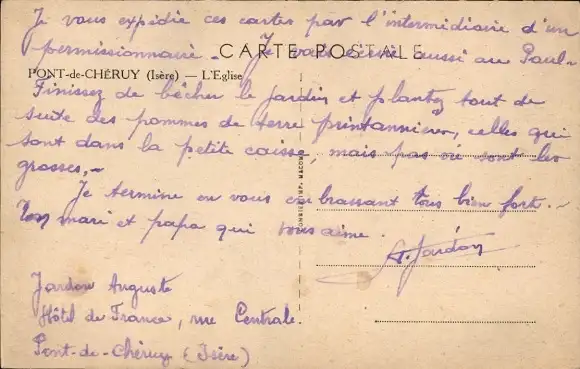 Je vous expédie ces cartes par l'intermidiaire d'un
permissionnaire. Je vais écrire aussi au Paul.
CARTE POSTALE
PONT-de-CHÉRUY (Isère) — L'Eglise
Finissez de bêcher le jardin et plantez tout de
suite des pommes de terre printannières, celles qui
sont dans la petite caisse, mais pas où sont les
grosses.
Je termine en vous embrassant tous bien fort.
Ton mari et papa qui vous aime.
A. Jardon
Jardon Auguste
Hôtel de France, rue Centrale.
Pont-de-Chéruy (Isère)